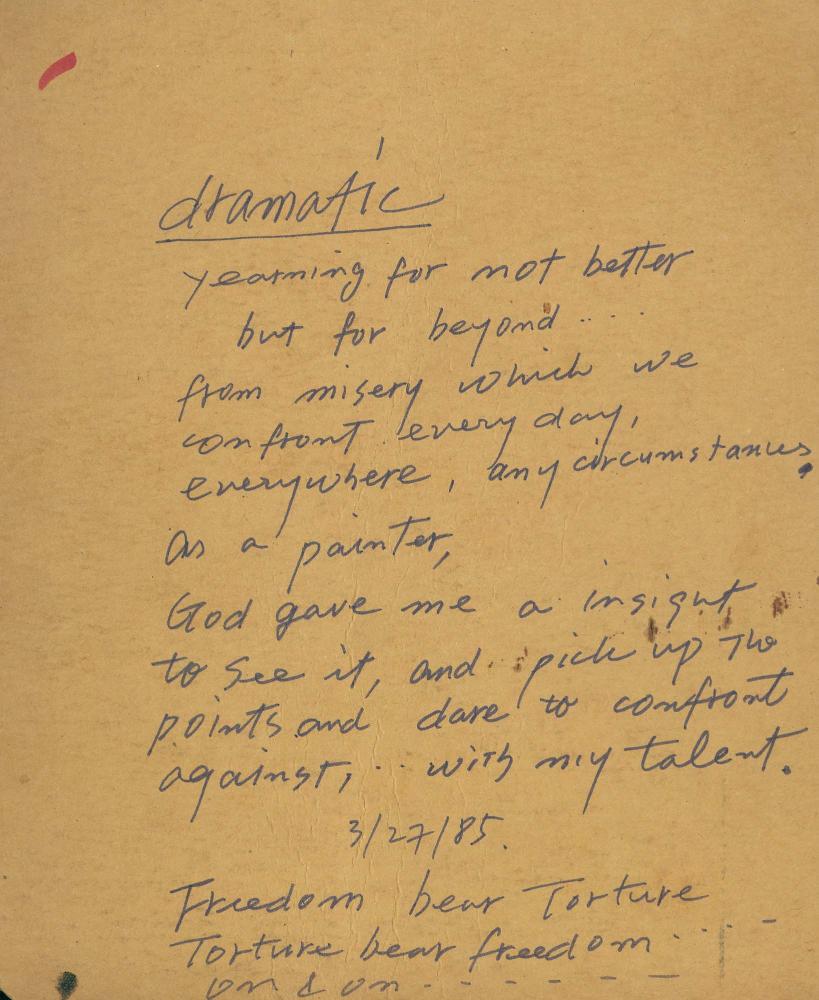 dramatic
yearning for not better
but for beyond ....
from misery which we
confront every day,
everywhere, any circumstances,
As a painter,
God gave me a insight
to see it, and pick up the
points and dare to confront
against, .. with my talent.
3/27/85.
Freedom bear Torture
Torture bear freedom .... -
on & on - - - - - -